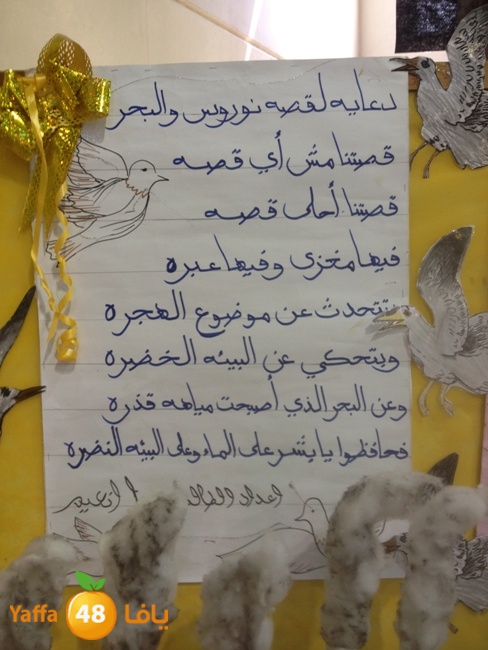 دعايه لقصه نورس والبحر
قصتنا مش أي قصه
قصتنا أحلى قصه
فيها مغزى وفيها عبره
بتتحدث عن موضوع الهجره
وبتحكي عن البيئه الخضره
وعن البحر الذي أصبحت مياهه قذره
فحافظوا يا بشر على الماء وعلى البيئه النضره
اعداد الطال
Yaffa 48 يافا